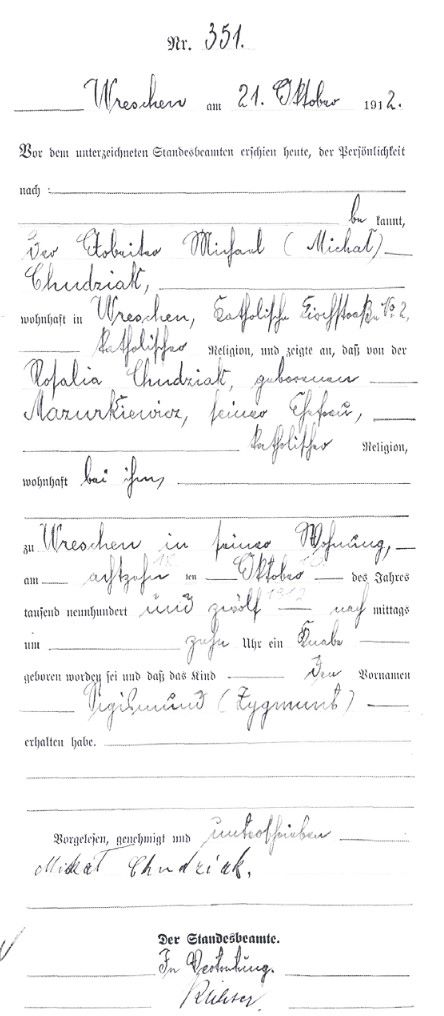 Nr. 351.
Wreschen am 21. Oktober 1912.
Vor dem unterzeichneten Standesbeamten erschien heute, der Persönlichkeit
nach
be kannt,
der Arbeiter Michael (Michał)
Chudziak,
wohnhaft in Wreschen, Katholische Kirchstraße No. 2,
katholischer Religion, und zeigte an, daß von der
Rosalia Chudziak, geborenen
Mazurkiewicz, seiner Ehefrau,
katholischer Religion,
wohnhaft bei ihm,
zu Wreschen in seiner Wohnung,
am achtzehn ten Oktober des Jahres
tausend neunhundert und zwölf nach mittags
um zehn Uhr ein Knabe
geboren worden sei und daß das Kind den Vornamen
Sigismund (Zygmunt)
erhalten habe.
Vorgelesen, genehmigt und unterschrieben
Michał Chudziak.
Der Standesbeamte.
In Vertretung.